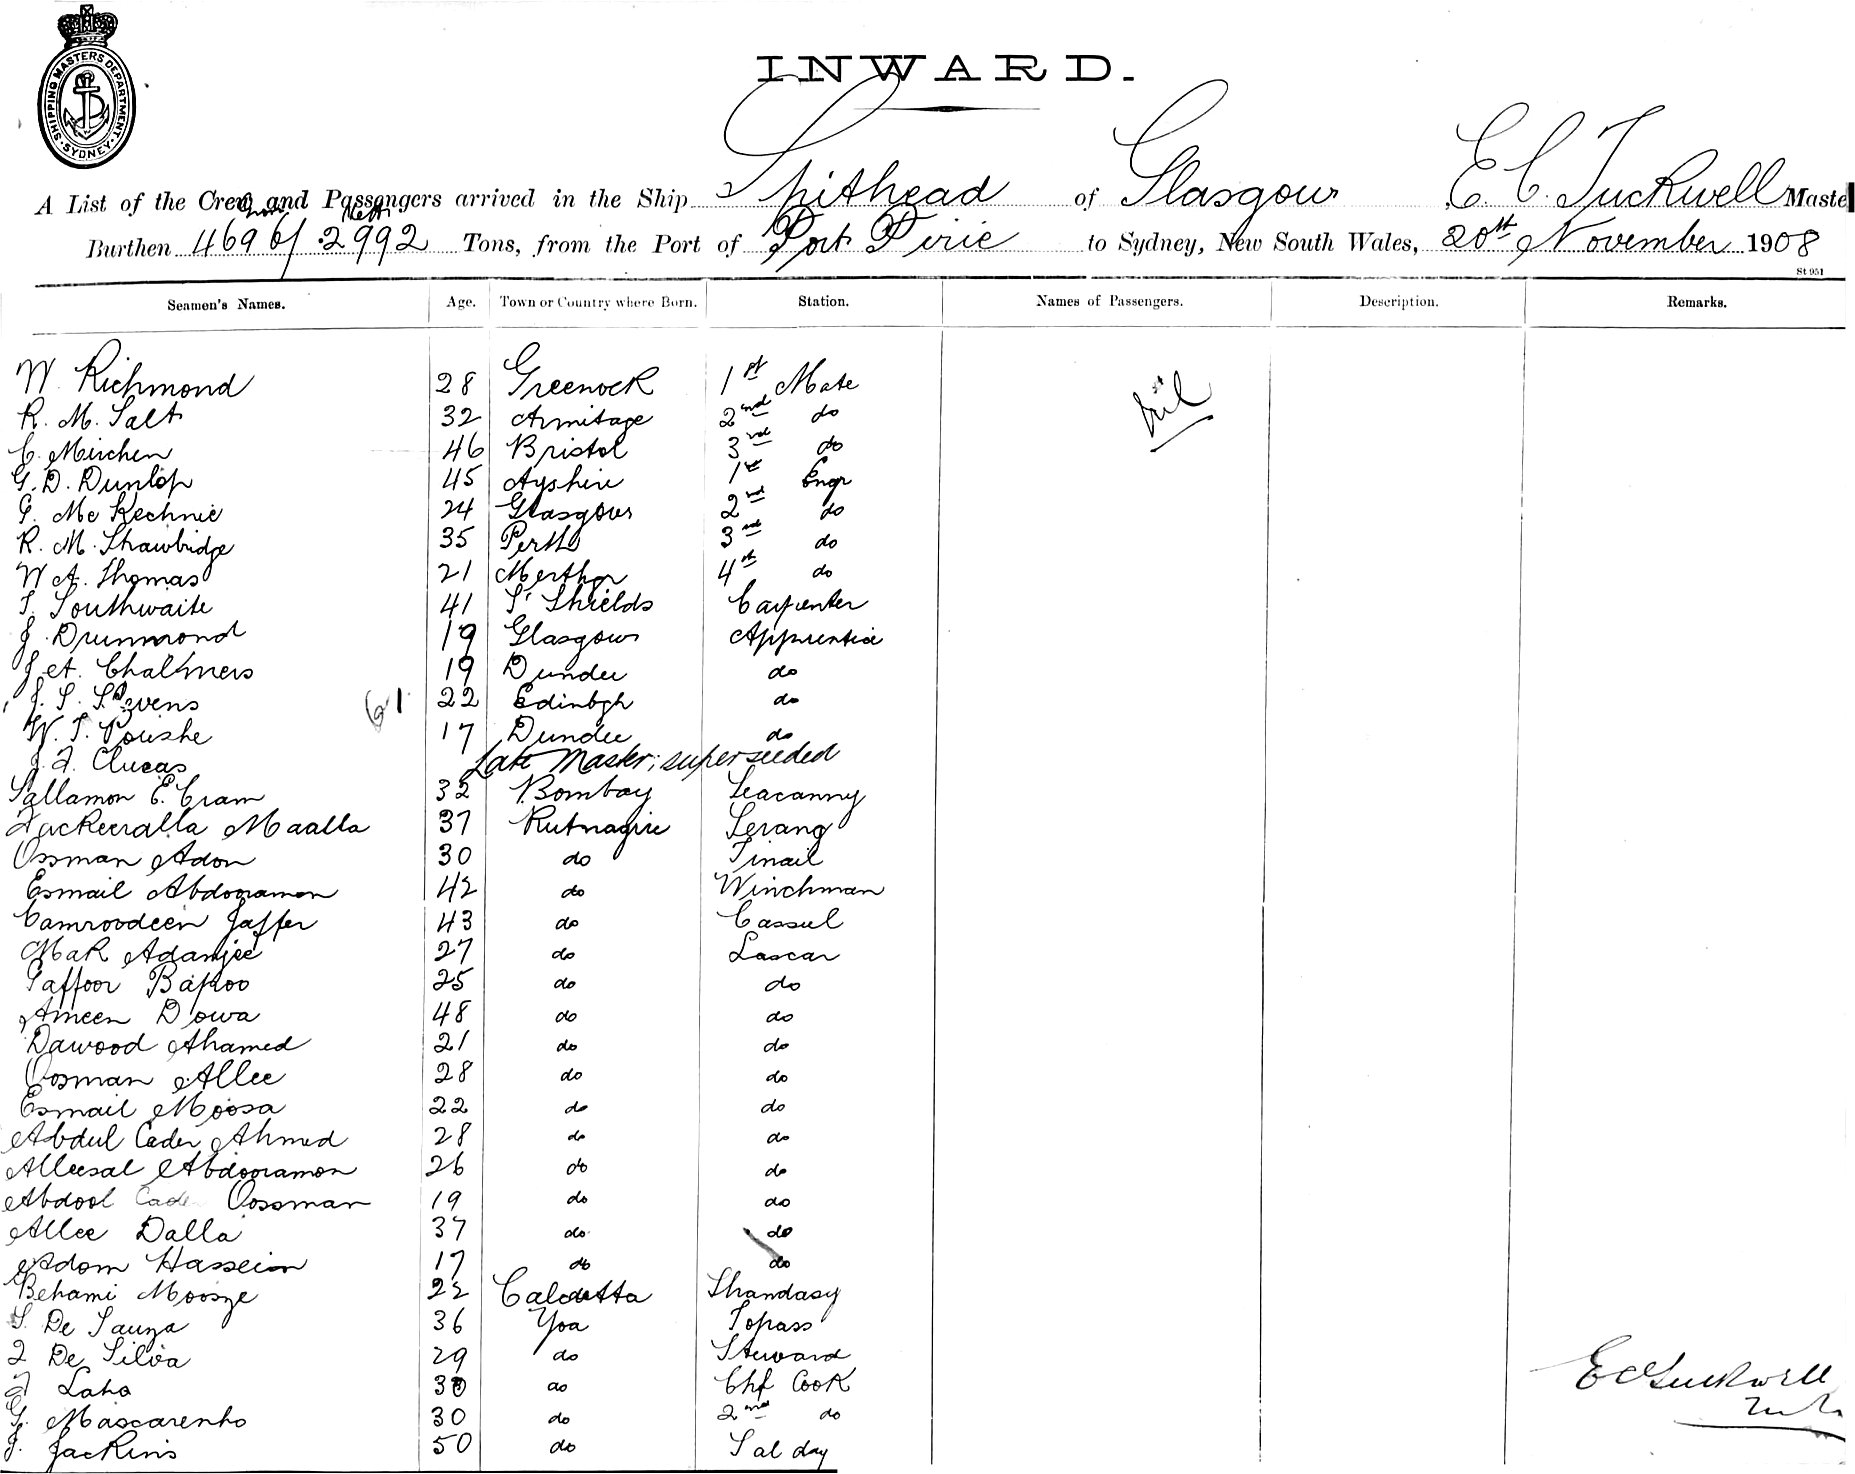 SHIPPING MASTERS DEPARTMENT · SYDNEY ·
INWARD.
A List of the Crew and Passengers arrived in the Ship Spithead of Glasgow E. C. Tuckwell Maste
Gross Nett
Burthen 4696/2992 Tons, from the Port of Port Pirie to Sydney, New South Wales, 20th November 1908
St 951
Seamen's Names. Age. Town or Country where Born. Station. Names of Passengers. Description. Remarks.
W. Richmond 28 Greenock 1st Mate nil
R. M. Salt 32 Armitage 2nd do
C. Mirchen 46 Bristol 3rd do
G. D. Dunlop 45 Ayshire 1st Engr
G. Mc Kechnie 24 Glasgow 2nd do
R. M. Shawbridge 35 Perth 3rd do
W A. Thomas 21 Merthyr 4th do
T. Southwaite 41 S. Shields Carpenter
J. Drummond 19 Glasgow Apprentice
J. A. Chalmers 19 Dundee do
J. S. Stevens 61 22 Edinbgh do
W. T. 17 Dundee do
J. F. Clucas Late Master; superseeded
Sallamon E. Cram 32 Bombay Seacanny
Fuckeeralla Maalla 37 Rutnagire Serang
Ossman Adon 30 do Tinail
Esmail Abdooramon 42 do Winchman
Camroodeen Jaffer 43 do Cassul
Mak Adamjee 27 do Lascar
Gaffoor Bapoo 25 do do
Ameen Dowa 48 do do
Dawood Ahamed 21 do do
Oosman Allee 28 do do
Esmail Moosa 22 do do
Abdul Cader Ahmed 28 do do
Alleesal Abdooramon 26 do do
Abdool Cade Oossman 19 do do
Allee Dalla 37 do do
Adom Hassein 17 do do
Behami Moosye 22 Calcutta Bhandasy
S. De Sauza 36 Goa Topass
F De Silva 29 do Steward
F Laho 30 do Chf Cook
G. Mascarenho 30 do 2nd do
J. Jackins 50 do Sal day
E C Tuckwell